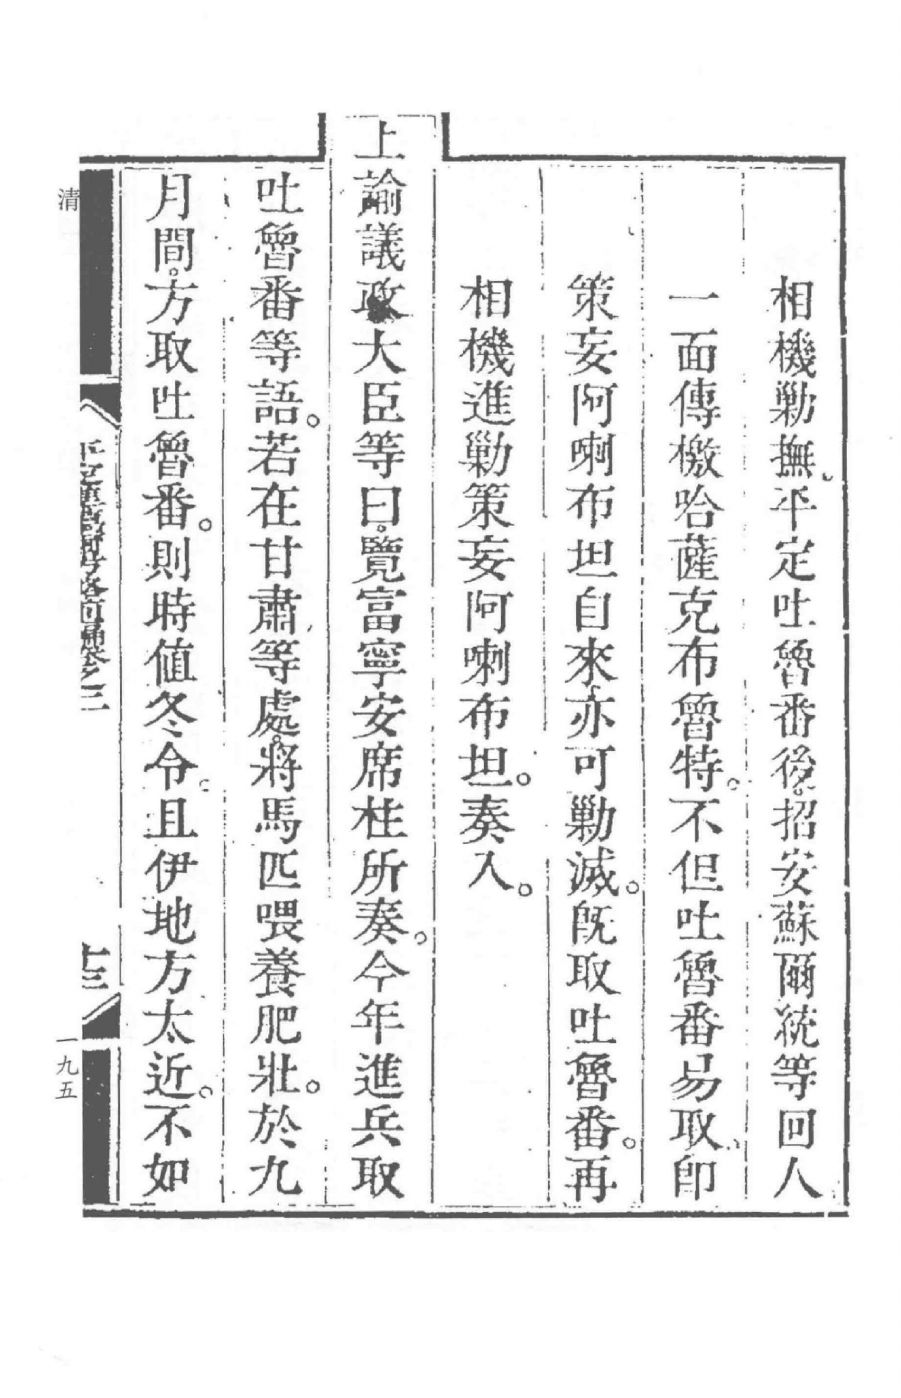 相機勦撫平定吐魯番後招安蘇爾統等回人
一面傳檄哈薩克布魯特。不但吐魯番易取即
策妄阿喇布坦自來亦可勦滅。既取吐魯番。再
相機進勦策妄阿喇布坦。奏入。
上諭議政大臣等曰。覽富寧安席柱所奏。今年進兵取
吐魯番等語。若在甘肅等處將馬匹喂養肥壯。於九
月間。方取吐魯番。則時值冬令。且伊地方太近。不如
清
平定準噶爾方略前編卷之三
十三
一九五